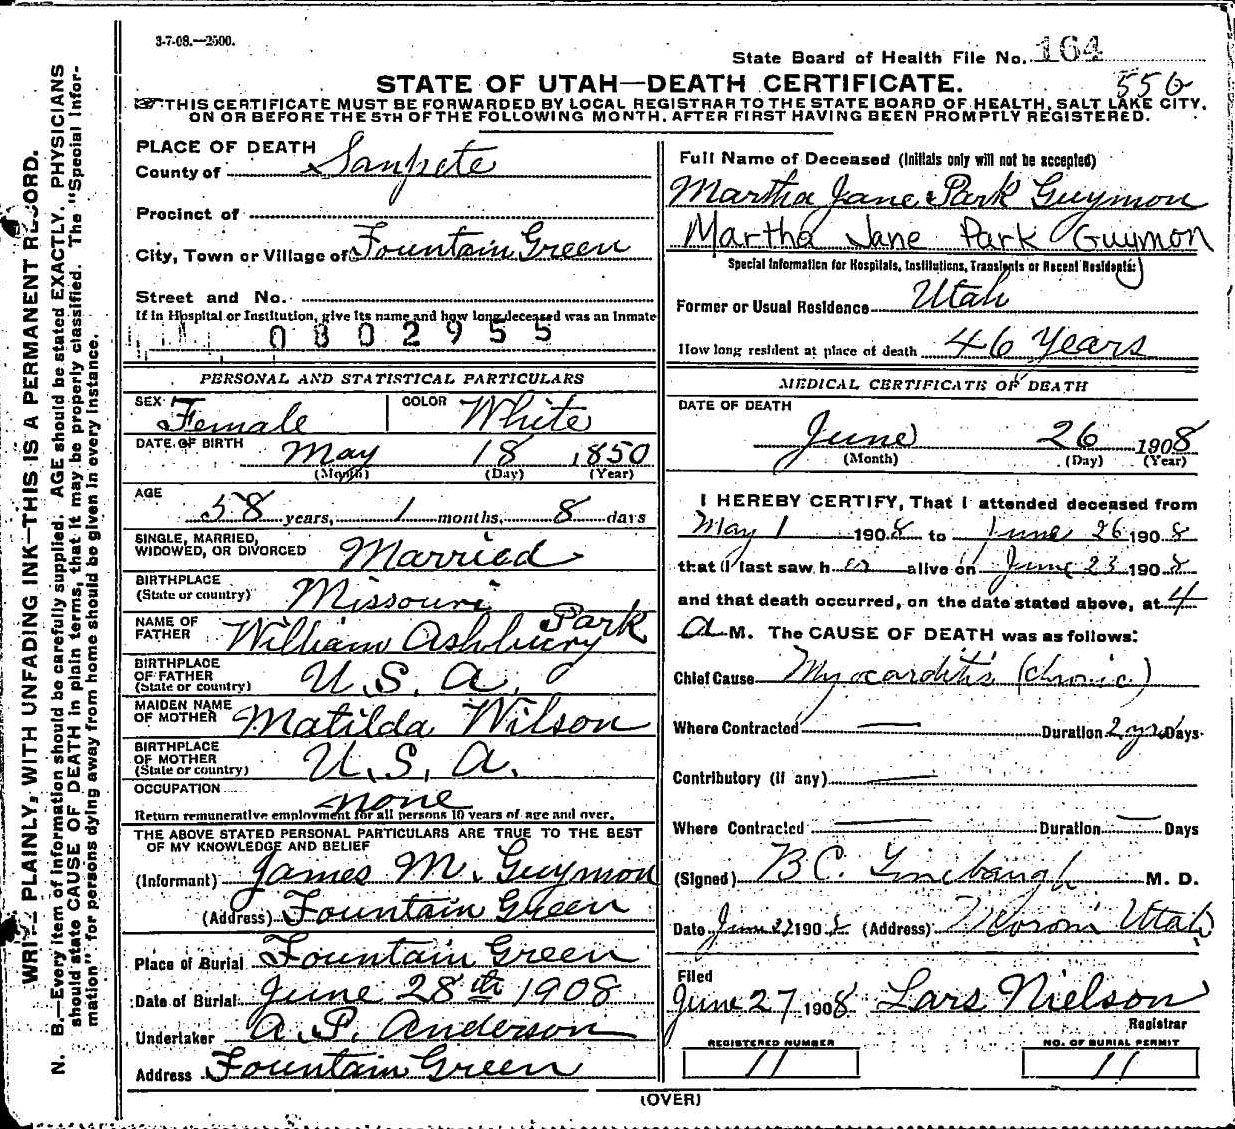 3-7-08.—2500.
State Board of Health File No. 164
STATE OF UTAH—DEATH CERTIFICATE.
556
THIS CERTIFICATE MUST BE FORWARDED BY LOCAL REGISTRAR TO THE STATE BOARD OF HEALTH, SALT LAKE CITY,
ON OR BEFORE THE 5TH OF THE FOLLOWING MONTH. AFTER FIRST HAVING BEEN PROMPTLY REGISTERED.
WRITE PLAINLY, WITH UNFADING INK—THIS IS A PERMANENT RECORD.
N. B.—Every item of information should be carefully supplied. AGE should be stated EXACTLY. PHYSICIANS
should state CAUSE OF DEATH in plain terms, that it may be properly classified. The "Special Infor-
mation" for persons dying away from home should be given in every instance.
PLACE OF DEATH
County of Sanpete
Precinct of
City, Town or Village of Fountain Green
Street and No.
If in Hospital or Institution, give its name and how long deceased was an Inmate
0802955
PERSONAL AND STATISTICAL PARTICULARS
SEX Female COLOR White
DATE OF BIRTH May 18 1850
(Month) (Day) (Year)
AGE
58 years, 1 months, 8 days
SINGLE, MARRIED,
WIDOWED, OR DIVORCED Married
BIRTHPLACE
(State or country) Missouri
NAME OF
FATHER William Ashbury Park
BIRTHPLACE
OF FATHER
(State or country) U.S.A.
MAIDEN NAME
OF MOTHER Matilda Wilson
BIRTHPLACE
OF MOTHER
(State or country) U.S.A.
OCCUPATION
none
Return remunerative employment for all persons 10 years of age and over.
THE ABOVE STATED PERSONAL PARTICULARS ARE TRUE TO THE BEST
OF MY KNOWLEDGE AND BELIEF
(Informant) James M. Guymon
(Address) Fountain Green
Place of Burial Fountain Green
Date of Burial June 28th 1908
Undertaker A. P. Anderson
Address Fountain Green
Full Name of Deceased (Initials only will not be accepted)
Martha Jane Park Guymon
Martha Jane Park Guymon
Special Information for Hospitals, Institutions, Transients or Recent Residents:
Former or Usual Residence Utah
How long resident at place of death 46 Years
MEDICAL CERTIFICATE OF DEATH
DATE OF DEATH
June 26 1908
(Month) (Day) (Year)
I HEREBY CERTIFY, That I attended deceased from
May 1 1908 to June 26 1908
that I last saw her alive on June 23 1908
and that death occurred, on the date stated above, at 4
A M. The CAUSE OF DEATH was as follows:
Chief Cause Myocarditis (chronic)
Where Contracted — Duration 2 yrs Days
Contributory (if any) —
Where Contracted — Duration — Days
(Signed) B C. M. D.
Date June 1908 (Address) Moroni Utah
Filed
June 27 1908 Lars Nielson
Registrar
REGISTERED NUMBER
11
NO. OF BURIAL PERMIT
11
(OVER)